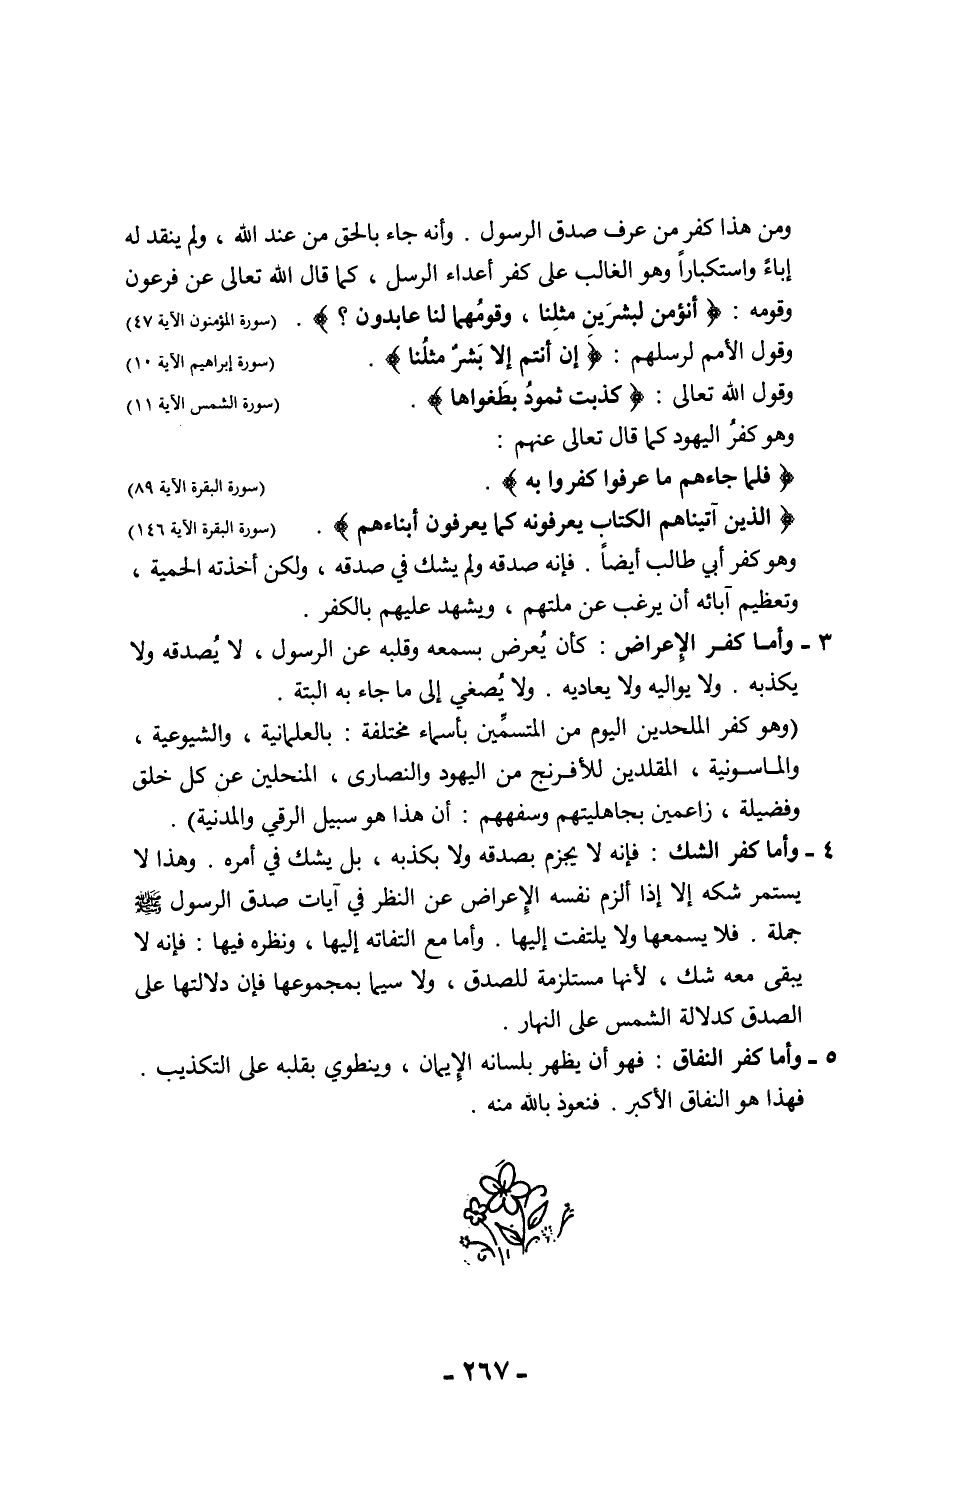 ومن هذا كفر من عرف صدق الرسول . وأنه جاء بالحق من عند الله ، ولم ينقد له
إباءً واستكباراً وهو الغالب على كفر أعداء الرسل ، كما قال الله تعالى عن فرعون
وقومه : ﴿ أنؤمن لبشرَينِ مثلِنا ، وقومُهما لنا عابدون ؟ ﴾ . (سورة المؤمنون الآية ٤٧)
وقول الأمم لرسلهم : ﴿ إن أنتم إلا بَشرٌ مثلُنا ﴾ . (سورة إبراهيم الآية ١٠)
وقول الله تعالى : ﴿ كذبت ثمودُ بطَغواها ﴾ . (سورة الشمس الآية ١١)
وهو كفرُ اليهود كما قال تعالى عنهم :
﴿ فلما جاءهم ما عرفوا كفروا به ﴾ . (سورة البقرة الآية ٨٩)
﴿ الذين آتيناهم الكتاب يعرفونه كما يعرفون أبناءهم ﴾ . (سورة البقرة الآية ١٤٦)
وهو كفر أبي طالب أيضاً . فإنه صدقه ولم يشك في صدقه ، ولكن أخذته الحمية ،
وتعظيم آبائه أن يرغب عن ملتهم ، ويشهد عليهم بالكفر .
٣ ـ وأما كفر الإعراض : كأن يُعرض بسمعه وقلبه عن الرسول ، لا يُصدقه ولا
يكذبه . ولا يواليه ولا يعاديه . ولا يُصغي إلى ما جاء به البتة .
(وهو كفر الملحدين اليوم من المتسمِّين بأسماء مختلفة : بالعلمانية ، والشيوعية ،
والماسونية ، المقلدين للأفرنج من اليهود والنصارى ، المنحلين عن كل خلق
وفضيلة ، زاعمين بجاهليتهم وسفههم : أن هذا هو سبيل الرقي والمدنية) .
٤ ـ وأما كفر الشك : فإنه لا يجزم بصدقه ولا بكذبه ، بل يشك في أمره . وهذا لا
يستمر شكه إلا إذا ألزم نفسه الإعراض عن النظر في آيات صدق الرسول ﷺ
جملة . فلا يسمعها ولا يلتفت إليها . وأما مع التفاته إليها ، ونظره فيها : فإنه لا
يبقى معه شك ، لأنها مستلزمة للصدق ، ولا سيما بمجموعها فإن دلالتها على
الصدق كدلالة الشمس على النهار .
٥ ـ وأما كفر النفاق : فهو أن يظهر بلسانه الإيمان ، وينطوي بقلبه على التكذيب .
فهذا هو النفاق الأكبر . فنعوذ بالله منه .
ـ ٢٦٧ ـ